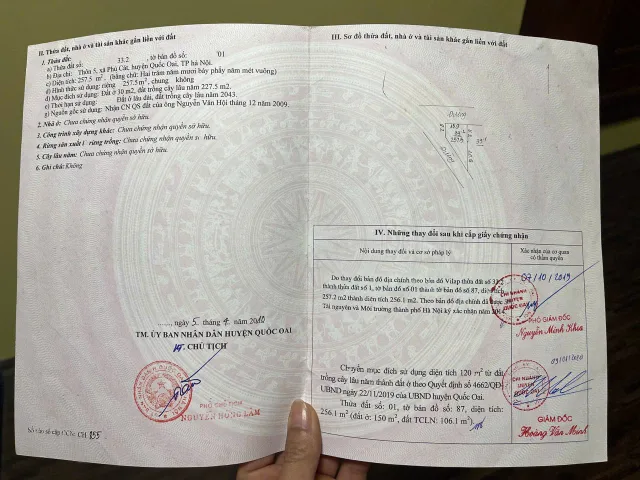 II. Thửa đất, nhà ở và tài sản khác gắn liền với đất
1. Thửa đất:
a) Thửa đất số: 33.2, tờ bản đồ số: 01
b) Địa chỉ: Thôn 5, xã Phú Cát, huyện Quốc Oai, TP hà Nội.
c) Diện tích: 257.5 m², (bằng chữ: Hai trăm năm mươi bảy phẩy năm mét vuông)
d) Hình thức sử dụng: riêng 257.5 m², chung không
đ) Mục đích sử dụng: Đất ở 30 m2, đất trồng cây lâu năm 227.5 m2.
e) Thời hạn sử dụng: Đất ở lâu dài, đất trồng cây lâu năm 2043.
g) Nguồn gốc sử dụng: Nhận CN QS đất của ông Nguyễn Văn Hội tháng 12 năm 2009.
2. Nhà ở: Chưa chứng nhận quyền sở hữu.
3. Công trình xây dựng khác: Chưa chứng nhận quyền sở hữu.
4. Rừng sản xuất là rừng trồng: Chưa chứng nhận quyền sở hữu.
5. Cây lâu năm: Chưa chứng nhận quyền sở hữu.
6. Ghi chú: Không
......, ngày 5 tháng 4 năm 2010
TM. ỦY BAN NHÂN DÂN HUYỆN QUỐC OAI
KT. CHỦ TỊCH
PHÓ CHỦ TỊCH
NGUYỄN HỒNG LAM
Số vào sổ cấp GCN: CH 855
III. Sơ đồ thửa đất, nhà ở và tài sản khác gắn liền với đất
Đường
33.2
257.5
Đường
IV. Những thay đổi sau khi cấp giấy chứng nhận
Nội dung thay đổi và cơ sở pháp lý
Xác nhận của cơ quan có thẩm quyền
Do thay đổi bản đồ địa chính theo bản đồ Vilap thửa đất số 33.2
thành thửa đất số 1, tờ bản đồ số 01 thành tờ bản đồ số 87, diện tích
257.2 m2 thành diện tích 256.1 m2. Theo bản đồ địa chính đã được Sở
Tài nguyên và Môi trường thành phố Hà Nội ký xác nhận năm 2014
07/10/2019
CHI NHÁNH
HUYỆN
QUỐC OAI
PHÓ GIÁM ĐỐC
Nguyễn Minh Khoa
Chuyển mục đích sử dụng diện tích 120 m² từ đất
trồng cây lâu năm thành đất ở theo Quyết định số 4662/QĐ-
UBND ngày 22/11/2019 của UBND huyện Quốc Oai.
Thửa đất số: 01, tờ bản đồ số: 87, diện tích:
256.1 m² (đất ở: 150 m², đất TCLN: 106.1 m²).
CHI NHÁNH
HUYỆN
QUỐC OAI
GIÁM ĐỐC
Hoàng Văn Minh